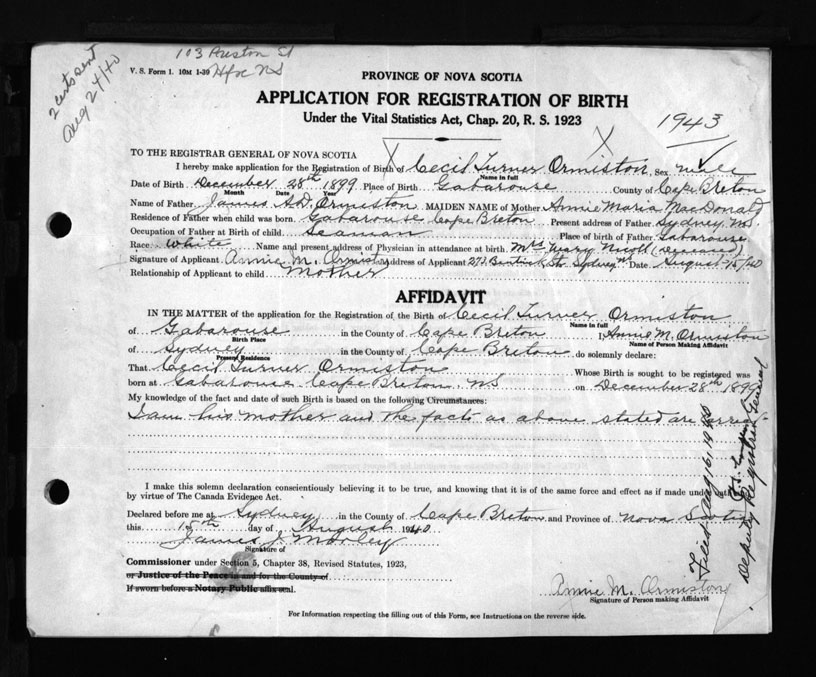 103 Preston St
Hfx NS
2 certs sent
Aug 24/40
V. S. Form 1. 10M 1-39
PROVINCE OF NOVA SCOTIA
APPLICATION FOR REGISTRATION OF BIRTH
Under the Vital Statistics Act, Chap. 20, R. S. 1923
1943
TO THE REGISTRAR GENERAL OF NOVA SCOTIA
I hereby make application for the Registration of Birth of Cecil Turner Ormiston Sex male
Name in full
Date of Birth December 28th 1899 Place of Birth Gabarouse County of Cape Breton
Month Date Year
Name of Father James Ormiston MAIDEN NAME of Mother Annie Maria MacDonald
Residence of Father when child was born Gabarouse Cape Breton Present address of Father Sydney N.S.
Occupation of Father at Birth of child Seaman Place of birth of Father Gabarouse
Race White Name and present address of Physician in attendance at birth. Mrs Mary Nicoll (deceased)
Signature of Applicant Annie M. Ormiston Address of Applicant 273 Bentinck St. Sydney NS Date August 15/40
Relationship of Applicant to child Mother
AFFIDAVIT
IN THE MATTER of the application for the Registration of the Birth of Cecil Turner Ormiston
Name in full
of Gabarouse in the County of Cape Breton I, Annie M. Ormiston
Birth Place Name of Person Making Affidavit
of Sydney in the County of Cape Breton do solemnly declare:
Present Residence
That Cecil Turner Ormiston Whose Birth is sought to be registered was
born at Gabarouse Cape Breton. NS on December 28th 1899
My knowledge of the fact and date of such Birth is based on the following Circumstances:
I am his mother and the facts as above stated are
I make this solemn declaration conscientiously believing it to be true, and knowing that it is of the same force and effect as if made under oath
by virtue of The Canada Evidence Act.
Declared before me at Sydney in the County of Cape Breton and Province of Nova Scotia
this 15th day of August 1940
James J Morley
Signature of
Commissioner under Section 5, Chapter 38, Revised Statutes, 1923,
or Justice of the Peace in and for the County of
If sworn before a Notary Public affix seal.
Annie M. Ormiston
Signature of Person making Affidavit
For Information respecting the filling out of this Form, see Instructions on the reverse side.
Filed Aug 16, 1940
Deputy Registrar General